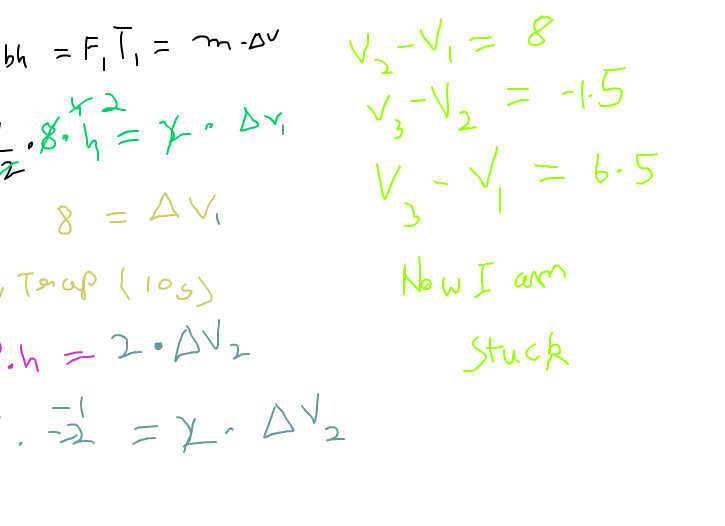 bh = F₁T₁ = m·Δv
/2 · 8 · h 4 2 = 2 · Δv₁
8 = ΔV₁
Trap (10s)
·h = 2·ΔV₂
· -1 -2 = 2 · ΔV₂
V₂ - V₁ = 8
V₃ - V₂ = -1.5
V₃ - V₁ = 6.5
Now I am
Stuck